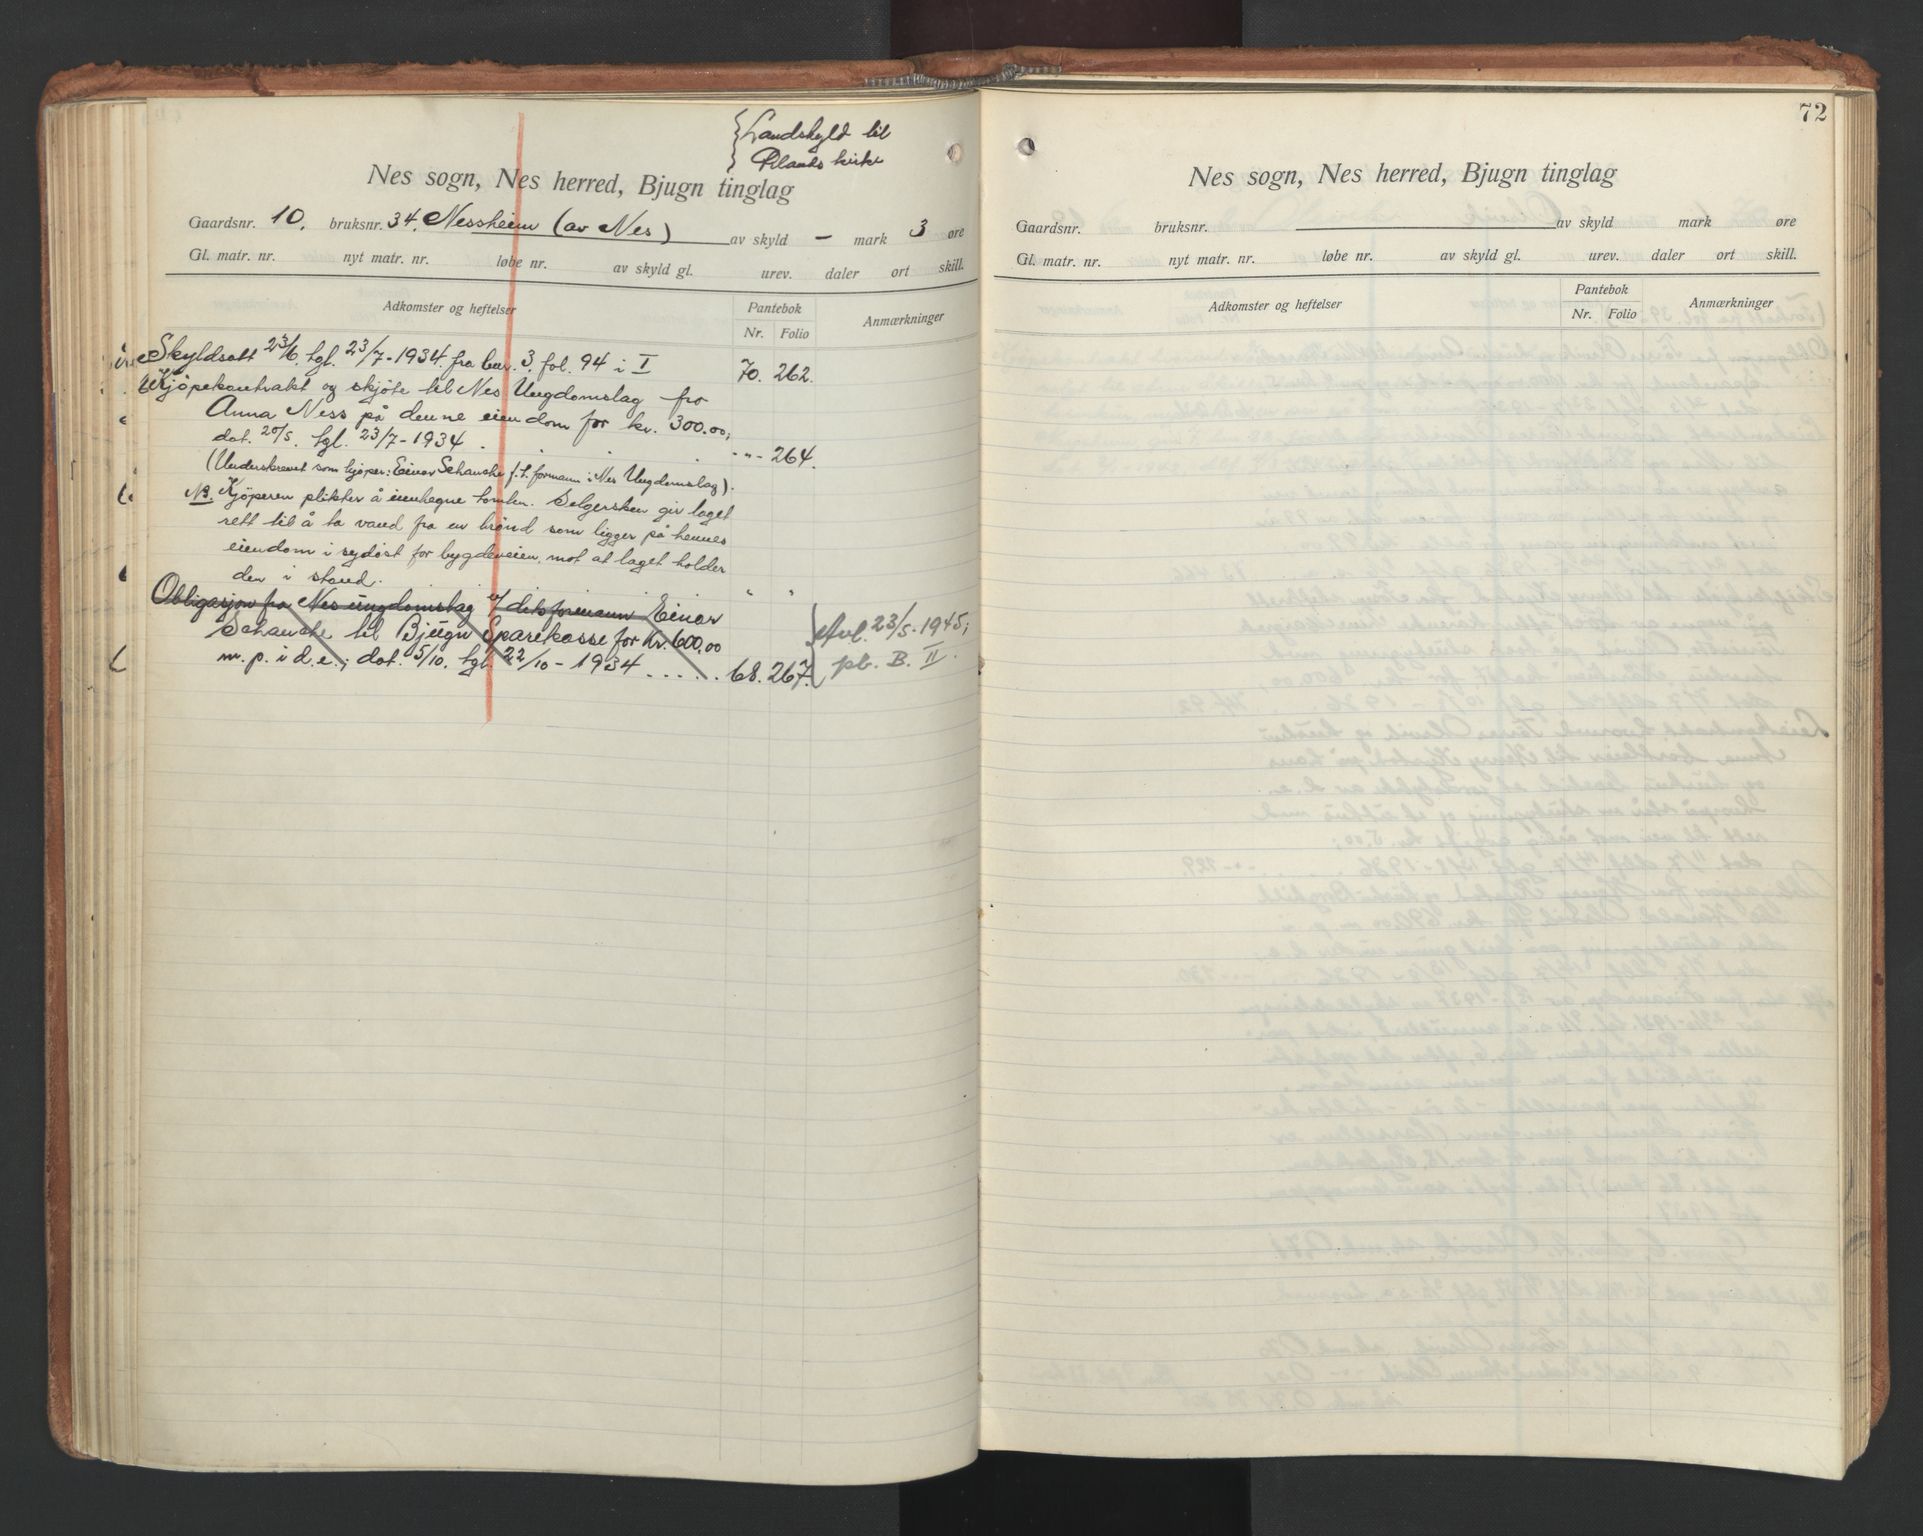 {Landskyld til
Ørlands kirke
Nes sogn, Nes herred, Bjugn tinglag
Gaardsnr. 10. bruksnr. 34. Nessheim (av Nes) av skyld – mark 3 øre
Gl. matr. nr. nyt matr. nr. løbe nr. av skyld gl. urev. daler ort skill.
Adkomster og heftelser
Pantebok
Nr. Folio
Anmærkninger
Skyldsatt 23/6. tgl. 23/7-1934. fra bnr. 3. fol. 94 i I 70. 262.
Kjøpekontrakt og skjøte til Nes Ungdomslag fra
Anna Ness på denne eiendom for kr. 300.00;
dat. 20/5. tgl. 23/7-1934 . . . . -"- 264.
(Underskrevet som kjøper: Einar Schancke f.t. formann i Nes Ungdomslag).
NB. Kjøperen plikter å innhegne tomten. Selgersken gir laget
rett til å ta vand fra en brønd som ligger på hennes
eiendom i sydøst for bygdeveien, mot at laget holder
den i stand. " "
Obligasjon fra Nes ungdomslag v/ dets formann Einar
Schancke til Bjugn Sparekasse for Kr. 600.00
m. p. i d. e.; dat. 5/10. tgl. 22/10-1934 . . . . . 68. 267.
Avl. 23/5-1945;
pb. B. II.
72
Nes sogn, Nes herred, Bjugn tinglag
Gaardsnr. bruksnr. av skyld mark øre
Gl. matr. nr. nyt matr. nr. løbe nr. av skyld gl. urev. daler ort skill.
Adkomster og heftelser
Pantebok
Nr. Folio
Anmærkninger